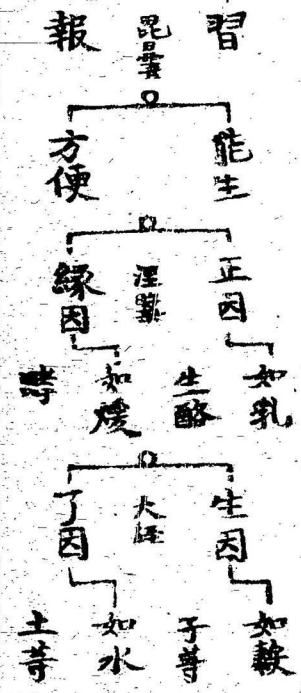 習
毘曇
報
能生
方便
正因
涅槃
縁因
如乳
生酪
如煖
生因
大経
了因
如穀
子等
如水
土等